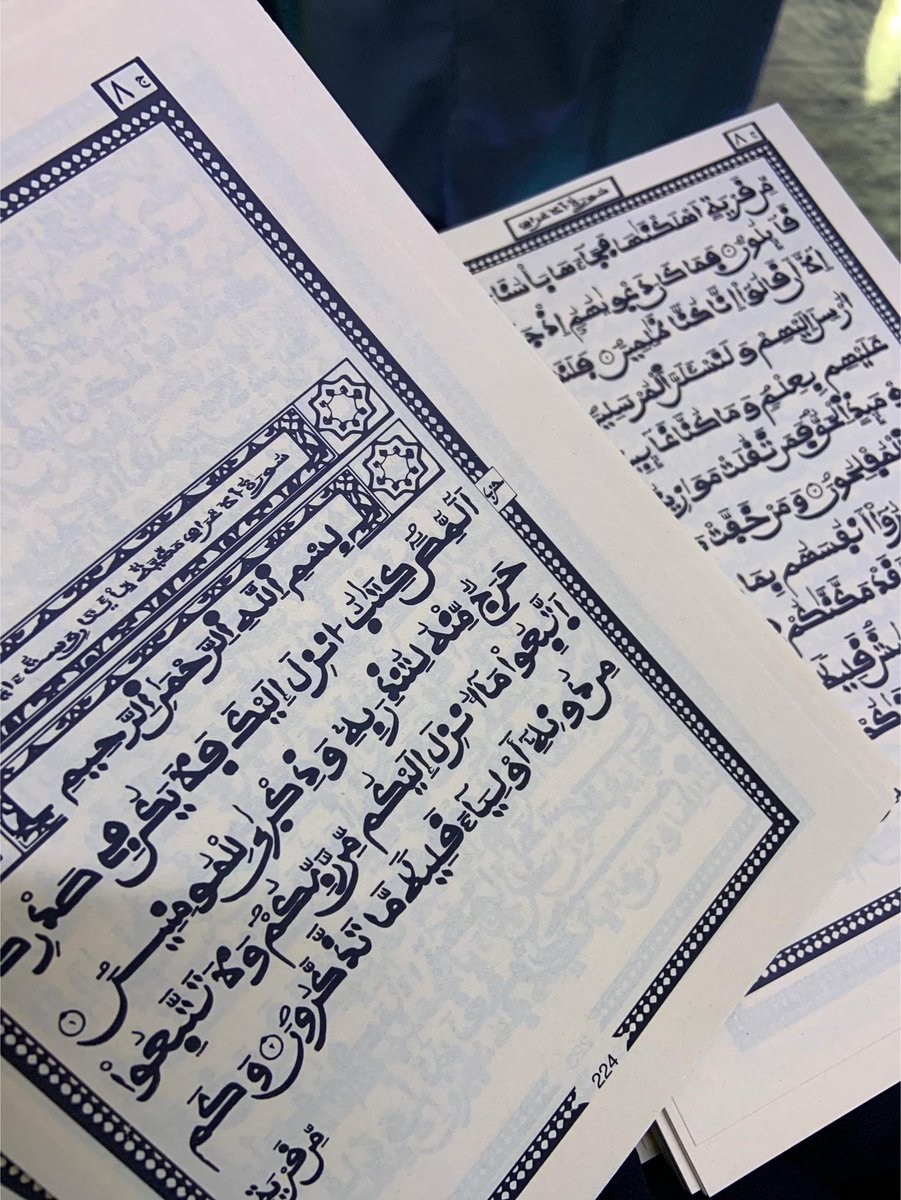 ج ٨
سورة الاعراف مكية مايتا وست ءا
بِسْمِ اِ۬للَّهِ اِ۬لرَّحْمَٰنِ اِ۬لرَّحِيمِ
حزب
أَلَٓمِّٓصَٓ كِتَٰبٌ انزِلَ إِلَيْكَ فَلَا يَكُن فِے صَدْرِكَ
حَرَجٌ مِّنْهُ لِتُنذِرَ بِهِۦ وَذِكْرَىٰ لِلْمُومِنِينَ
اَ۪تَّبِعُواْ مَآ أُنزِلَ إِلَيْكُم مِّن رَّبِّكُمْ وَلَا تَتَّبِعُواْ
مِن دُونِهِۦٓ أَوْلِيَآءَ قَلِيلاً مَّا تَذَّكَّرُونَ وَكَم
مِّن قَرْيَةٍ
224
ج ٨
سورة الاعراف
مِّن قَرْيَةٍ اَهْلَكْنَٰهَا فَجَآءَهَا بَأْسُنَا
قَآئِلُونَ فَمَا كَانَ دَعْوٜيٰهُمُۥٓ إِذْ
إِلَّآ أَن قَالُوٓاْ إِنَّا كُنَّا ظَٰلِمِينَ
أُرْسِلَ إِلَيْهِمْ وَلَنَسْـَٔلَنَّ اَ۬لْمُرْسَلِينَ
عَلَيْهِم بِعِلْمٍ وَمَا كُنَّا
اِ۬لْحَقُّ فَمَن ثَقُلَتْ
اُ۬لْمُفْلِحُونَ وَمَنْ خَفَّتْ
أَنفُسَهُم بِمَا
مَكَّنَّٰكُمْ